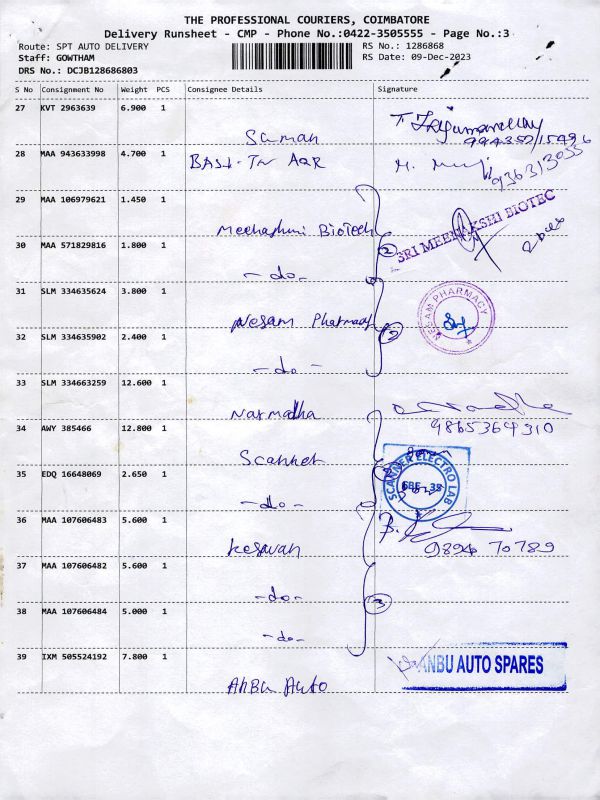 THE PROFESSIONAL COURIERS, COIMBATORE
Delivery Runsheet - CMP - Phone No.:0422-3505555 - Page No.:3
Route: SPT AUTO DELIVERY RS No.: 1286868
Staff: GOWTHAM RS Date: 09-Dec-2023
DRS No.: DCJB128686803
S No Consignment No Weight PCS Consignee Details Signature
27 KVT 2963639 6.900 1
28 MAA 943633998 4.700 1
29 MAA 106979621 1.450 1
SRI MEENAKSHI BIOTEC
Meenakshi BioTech
30 MAA 571829816 1.800 1 2
- do -
31 SLM 334635624 3.800 1
NESAM PHARMACY
Nesam Pharmacy 2
32 SLM 334635902 2.400 1
- do -
33 SLM 334663259 12.600 1
Narmadha
9865364310
34 AWY 385466 12.800 1
Scanner
SCANNER ELECTRO LAB
CBE - 38
35 EDQ 16648069 2.650 1
- do -
36 MAA 107606483 5.600 1
Kesavan
9894670789
37 MAA 107606482 5.600 1
- do - 3
38 MAA 107606484 5.000 1
- do -
39 IXM 505524192 7.800 1
ANBU AUTO SPARES
Anbu Auto